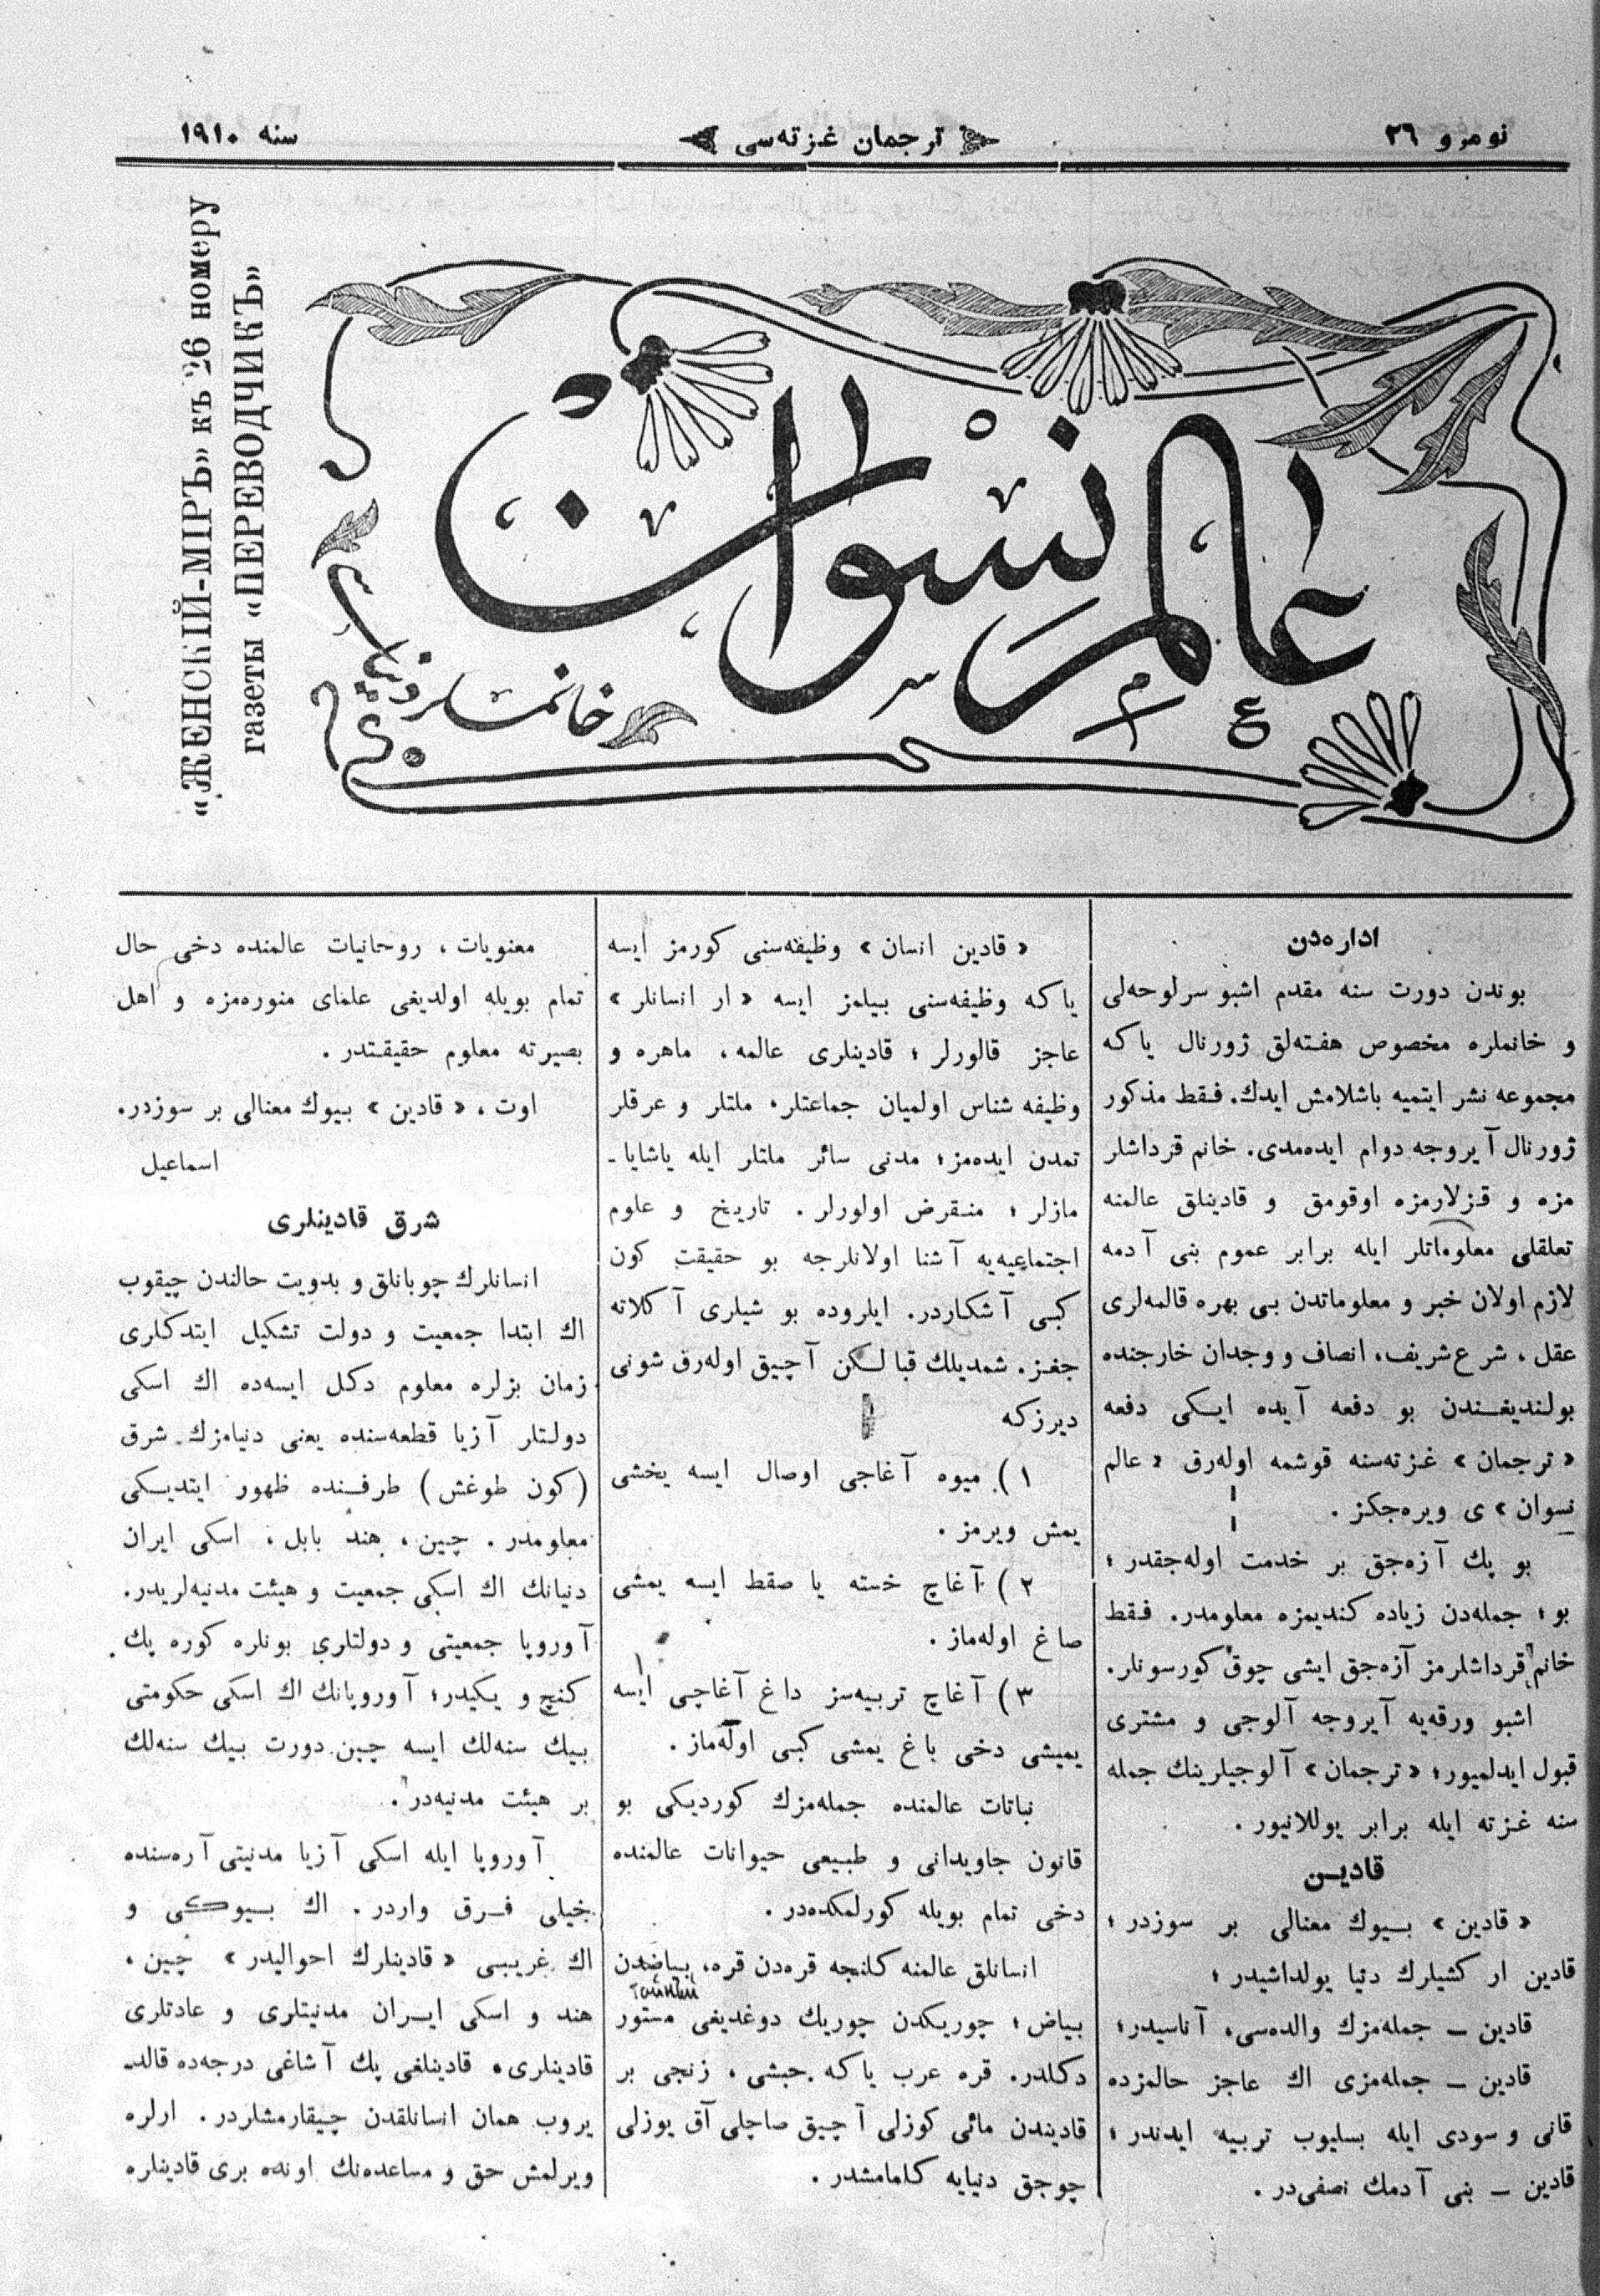 نومرو ٢٦
ترجمان غزته‌سی
سنه ١٩١٠
«ЖЕНСКІЙ-МІРЪ» къ 26 номеру
газеты «ПЕРЕВОДЧИКЪ»
عالم نسوان
خانملر دنیاسی
اداره‌دن
بوندن دورت سنه مقدم اشبو سرلوحه‌لی
و خانملره مخصوص هفته‌لق ژورنال یاکه
مجموعه نشر ایتمیه باشلامش ایدك. فقط مذکور
ژورنال آیروجه دوام ایده‌مدی. خانم قرداشلر
مزه و قزلارمزه اوقومق و قادینلق عالمنه
تعلقلی معلوماتلر ایله برابر عموم بنی آدمه
لازم اولان خبر و معلوماتدن بی بهره قالمه‌لری
عقل، شرع شریف، انصاف و وجدان خارجنده
بولندیغندن بو دفعه آیده ایکی دفعه
«ترجمان» غزته‌سنه قوشمه اوله‌رق «عالم
نسوان» ی ویره‌جکز.
بو پك آزه‌جق بر خدمت اوله‌جقدر؛
بو؛ جمله‌دن زیاده کندیمزه معلومدر. فقط
خانم قرداشلرمز آزه‌جق ایشی چوق کورسونلر.
اشبو ورقه‌یه آیروجه آلوجی و مشتری
قبول ایدلمیور؛ «ترجمان» آلوجیلرینك جمله
سنه غزته ایله برابر یوللانیور.
قادین
«قادین» بیوك معنالی بر سوزدر؛
قادین ار کشیلرك دنیا یولداشیدر؛
قادین – جمله‌مزك والده‌سی، آناسیدر؛
قادین – جمله‌مزی اك عاجز حالمزده
قانی و سودی ایله بسلیوب تربیه ایدندر؛
قادین – بنی آدمك نصفی‌در.
«قادین انسان» وظیفه‌سنی کورمز ایسه
یاکه وظیفه‌سنی بیلمز ایسه «ار انسانلر»
عاجز قالورلر؛ قادینلری عالمه، ماهره و
وظیفه شناس اولمیان جماعتلر، ملتلر و عرقلر
تمدن ایده‌مز؛ مدنی سائر ملتلر ایله یاشایا-
مازلر؛ منقرض اولورلر. تاریخ و علوم
اجتماعیه‌یه آشنا اولانلرجه بو حقیقت کون
کبی آشکاردر. ایلروده بو شیلری آکلاته
جغز. شمدیلك قبا لکن آچیق اوله‌رق شونی
دیرزکه
١) میوه آغاجی اوصال ایسه یخشی
یمش ویرمز.
٢) آغاچ خسته یا صقط ایسه یمشی
صاغ اوله‌ماز.
٣) آغاچ تربیه‌سز داغ آغاچی ایسه
یمیشی دخی باغ یمشی کبی اوله‌ماز.
نباتات عالمنده جمله‌مزك کوردیکی بو
قانون جاویدانی و طبیعی حیوانات عالمنده
دخی تمام بویله کورلمکده‌در.
انسانلق عالمنه کلنجه قره‌دن قره، بیاضدن
بیاض؛ چوریکدن چوریك دوغدیغی مستور
دکلدر. قره عرب یاکه حبشی، زنجی بر
قادیندن مائی کوزلی آچیق صاچلی آق یوزلی
چوجق دنیایه کلمامشدر.
معنویات، روحانیات عالمنده دخی حال
تمام بویله اولدیغی علمای منوره‌مزه و اهل
بصیرته معلوم حقیقتدر.
اوت، «قادین» بیوك معنالی بر سوزدر.
اسماعیل
شرق قادینلری
انسانلرك چوبانلق و بدویت حالندن چیقوب
اك ابتدا جمعیت و دولت تشکیل ایتدکلری
زمان بزلره معلوم دکل ایسه‌ده اك اسکی
دولتلر آزیا قطعه‌سنده یعنی دنیامزك شرق
(کون طوغش) طرفنده ظهور ایتدیکی
معلومدر. چین، هند بابل، اسکی ایران
دنیانك اك اسکی جمعیت و هیئت مدنیه‌لریدر.
آوروپا جمعیتی و دولتلری بونلره کوره پك
کنچ و یکیدر؛ آوروپانك اك اسکی حکومتی
بیك سنه‌لك ایسه چین دورت بیك سنه‌لك
بر هیئت مدنیه‌در.
آوروپا ایله اسکی آزیا مدنیتی آره‌سنده
خیلی فرق واردر. اك بیوکی و
اك غریبی «قادینلرك احوالیدر» چین،
هند و اسکی ایران مدنیتلری و عادتلری
قادینلری، قادینلغی پك آشاغی درجه‌ده قالد-
یروب همان انسانلقدن چیقارمشلردر. ارلره
ویرلمش حق و مساعده‌نك اونده بری قادینلره